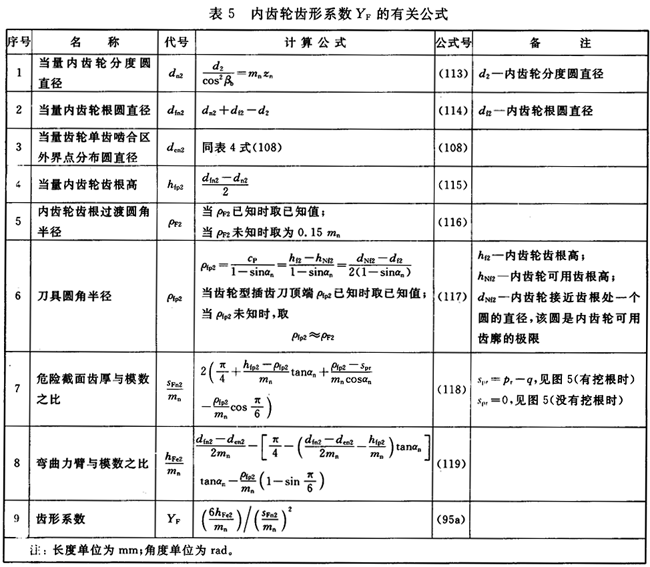 表 5 内齿轮齿形系数 Y_F 的有关公式
序号 名 称 代号 计 算 公 式 公式号 备 注
1 当量内齿轮分度圆直径 d_n2 d_2/cos²β_b = m_n z_n (113) d_2—内齿轮分度圆直径
2 当量内齿轮根圆直径 d_fn2 d_n2+d_f2−d_2 (114) d_f2—内齿轮根圆直径
3 当量齿轮单齿啮合区外界点分布圆直径 d_en2 同表 4 式(108) (108)
4 当量内齿轮齿根高 h_fp2 (d_fn2−d_n2)/2 (115)
5 内齿轮齿根过渡圆角半径 ρ_F2 当 ρ_F2 已知时取已知值;
当 ρ_F2 未知时取为 0.15 m_n (116)
6 刀具圆角半径 ρ_fp2 ρ_fp2 = c_P/(1−sinα_n) = (h_f2−h_Nf2)/(1−sinα_n) = (d_Nf2−d_f2)/(2(1−sinα_n))
当齿轮型插齿刀顶端 ρ_fp2 已知时取已知值;
当 ρ_fp2 未知时,取
ρ_fp2≈ρ_F2
(117) h_f2—内齿轮齿根高;
h_Nf2—内齿轮可用齿根高;
d_Nf2—内齿轮接近齿根处一个
圆的直径,该圆是内齿轮可用
齿廓的极限
7 危险截面齿厚与模数之比 s_Fn2/m_n 2(π/4 + (h_fp2−ρ_fp2)/m_n tanα_n + (ρ_fp2−s_pr)/(m_n cosα_n)
−ρ_fp2/m_n cos π/6) (118) s_pr=p_r−q,见图 5(有挖根时)
s_pr=0,见图 5(没有挖根时)
8 弯曲力臂与模数之比 h_Fe2/m_n (d_fn2−d_en2)/2m_n − [π/4 − ((d_fn2−d_en2)/2m_n − h_fp2/m_n) tanα_n]
tanα_n − ρ_fp2/m_n (1−sin π/6) (119)
9 齿形系数 Y_F (6h_Fe2/m_n)/(s_Fn2/m_n)² (95a)
注:长度单位为 mm;角度单位为 rad。